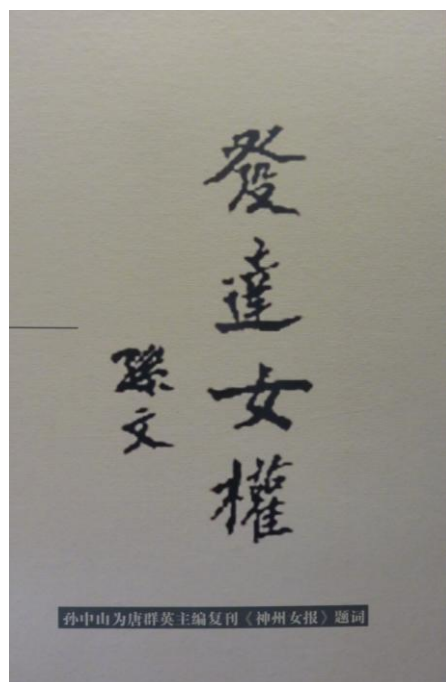 發達女權
孫文
孙中山为唐群英主编复刊《神州女报》题词